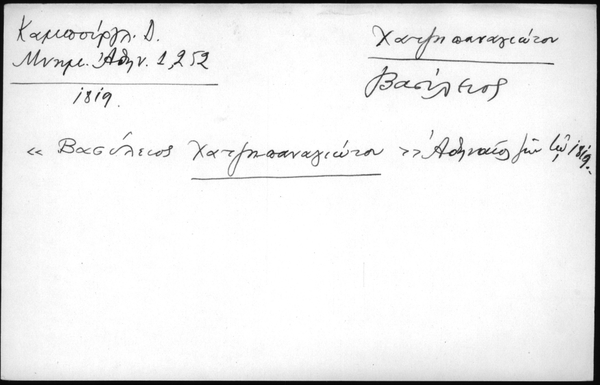 Καμπούργλ. Δ.
Μνημ. Ἀθην. 1, 252
1819.
Χατζηπαναγιώτου
Βασίλειος
« Βασίλειος Χατζηπαναγιώτου » Ἀθηναῖος ζῶν τῷ 1819.